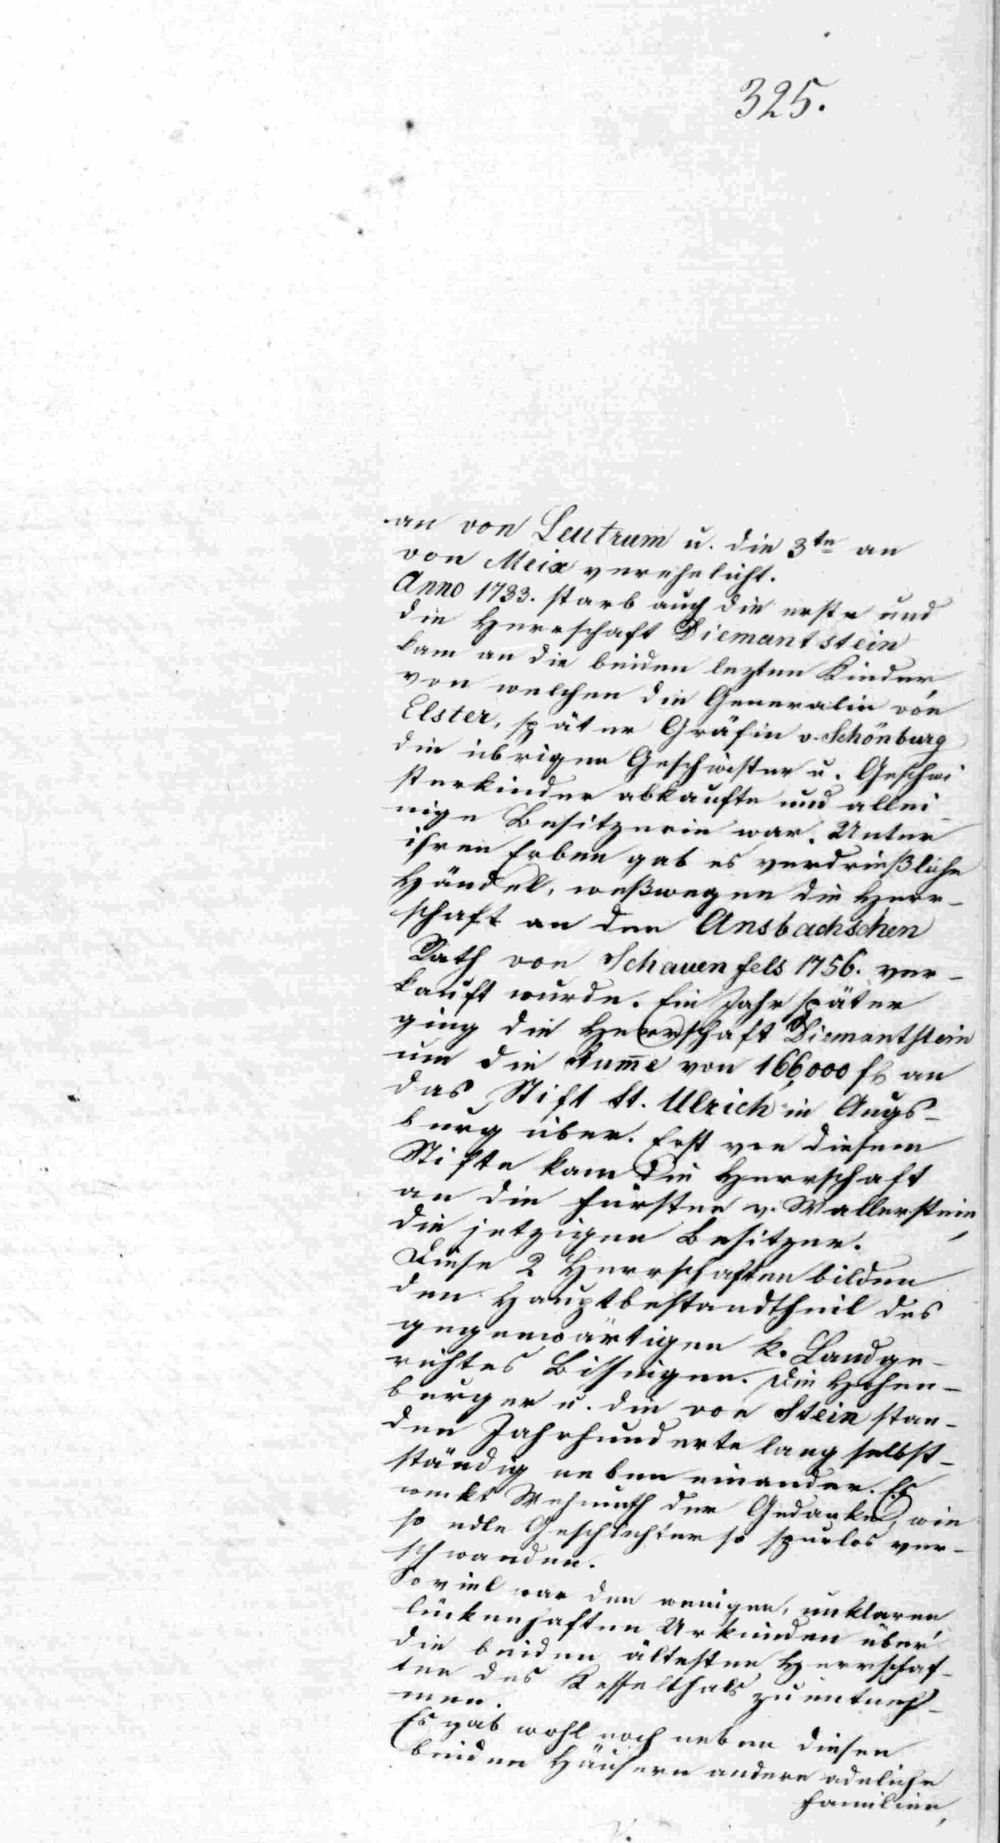 325.
an von Leutrum u. die 3te an
von Meix verehelicht.
Anno 1733. starb auch die erste und
die Herrschaft Diemantstein
kam an die beiden lezten Kinder,
von welchen die Generalin von
Elster, später Gräfin v. Schönburg
die übrigen Geschwister u. Geschwi
sterkinder abkaufte und allei
nige Besitzerin war. Unter
ihren Erben gab es verdrießliche
Händel, weßwegen die Herr-
schaft an den Ansbachschen
Rath von Schauenfels 1756. ver-
kauft wurde. Ein Jahr später
ging die Herrschaft Diemantstein
um die Sum̄e von 166,000 fl an
das Stift St. Ulrich in Augs-
burg über. Erst von diesem
Stifte kam die Herrschaft
an die Fürsten v. Wallerstein,
die jetzigen Besitzer.
Diese 2 Herrschaften bilden
den Hauptbestandtheil des
gegenwärtigen k. Landge-
richtes Bissingen. Die Hohen-
burger u. die von Stein stan-
den Jahrhunderte lang selbst-
ständig neben einander. Es
weckt Wehmuth der Gedanke, wie
so edle Geschlechter so spurlos ver-
schwanden.
Soviel war den wenigen, unklaren
lückenhaften Urkunden über
die beiden ältesten Herrschaf-
ten des Kesselthals zu entneh-
men.
Es gab wohl noch neben diesen
beiden Häusern andere adeliche
Familien,